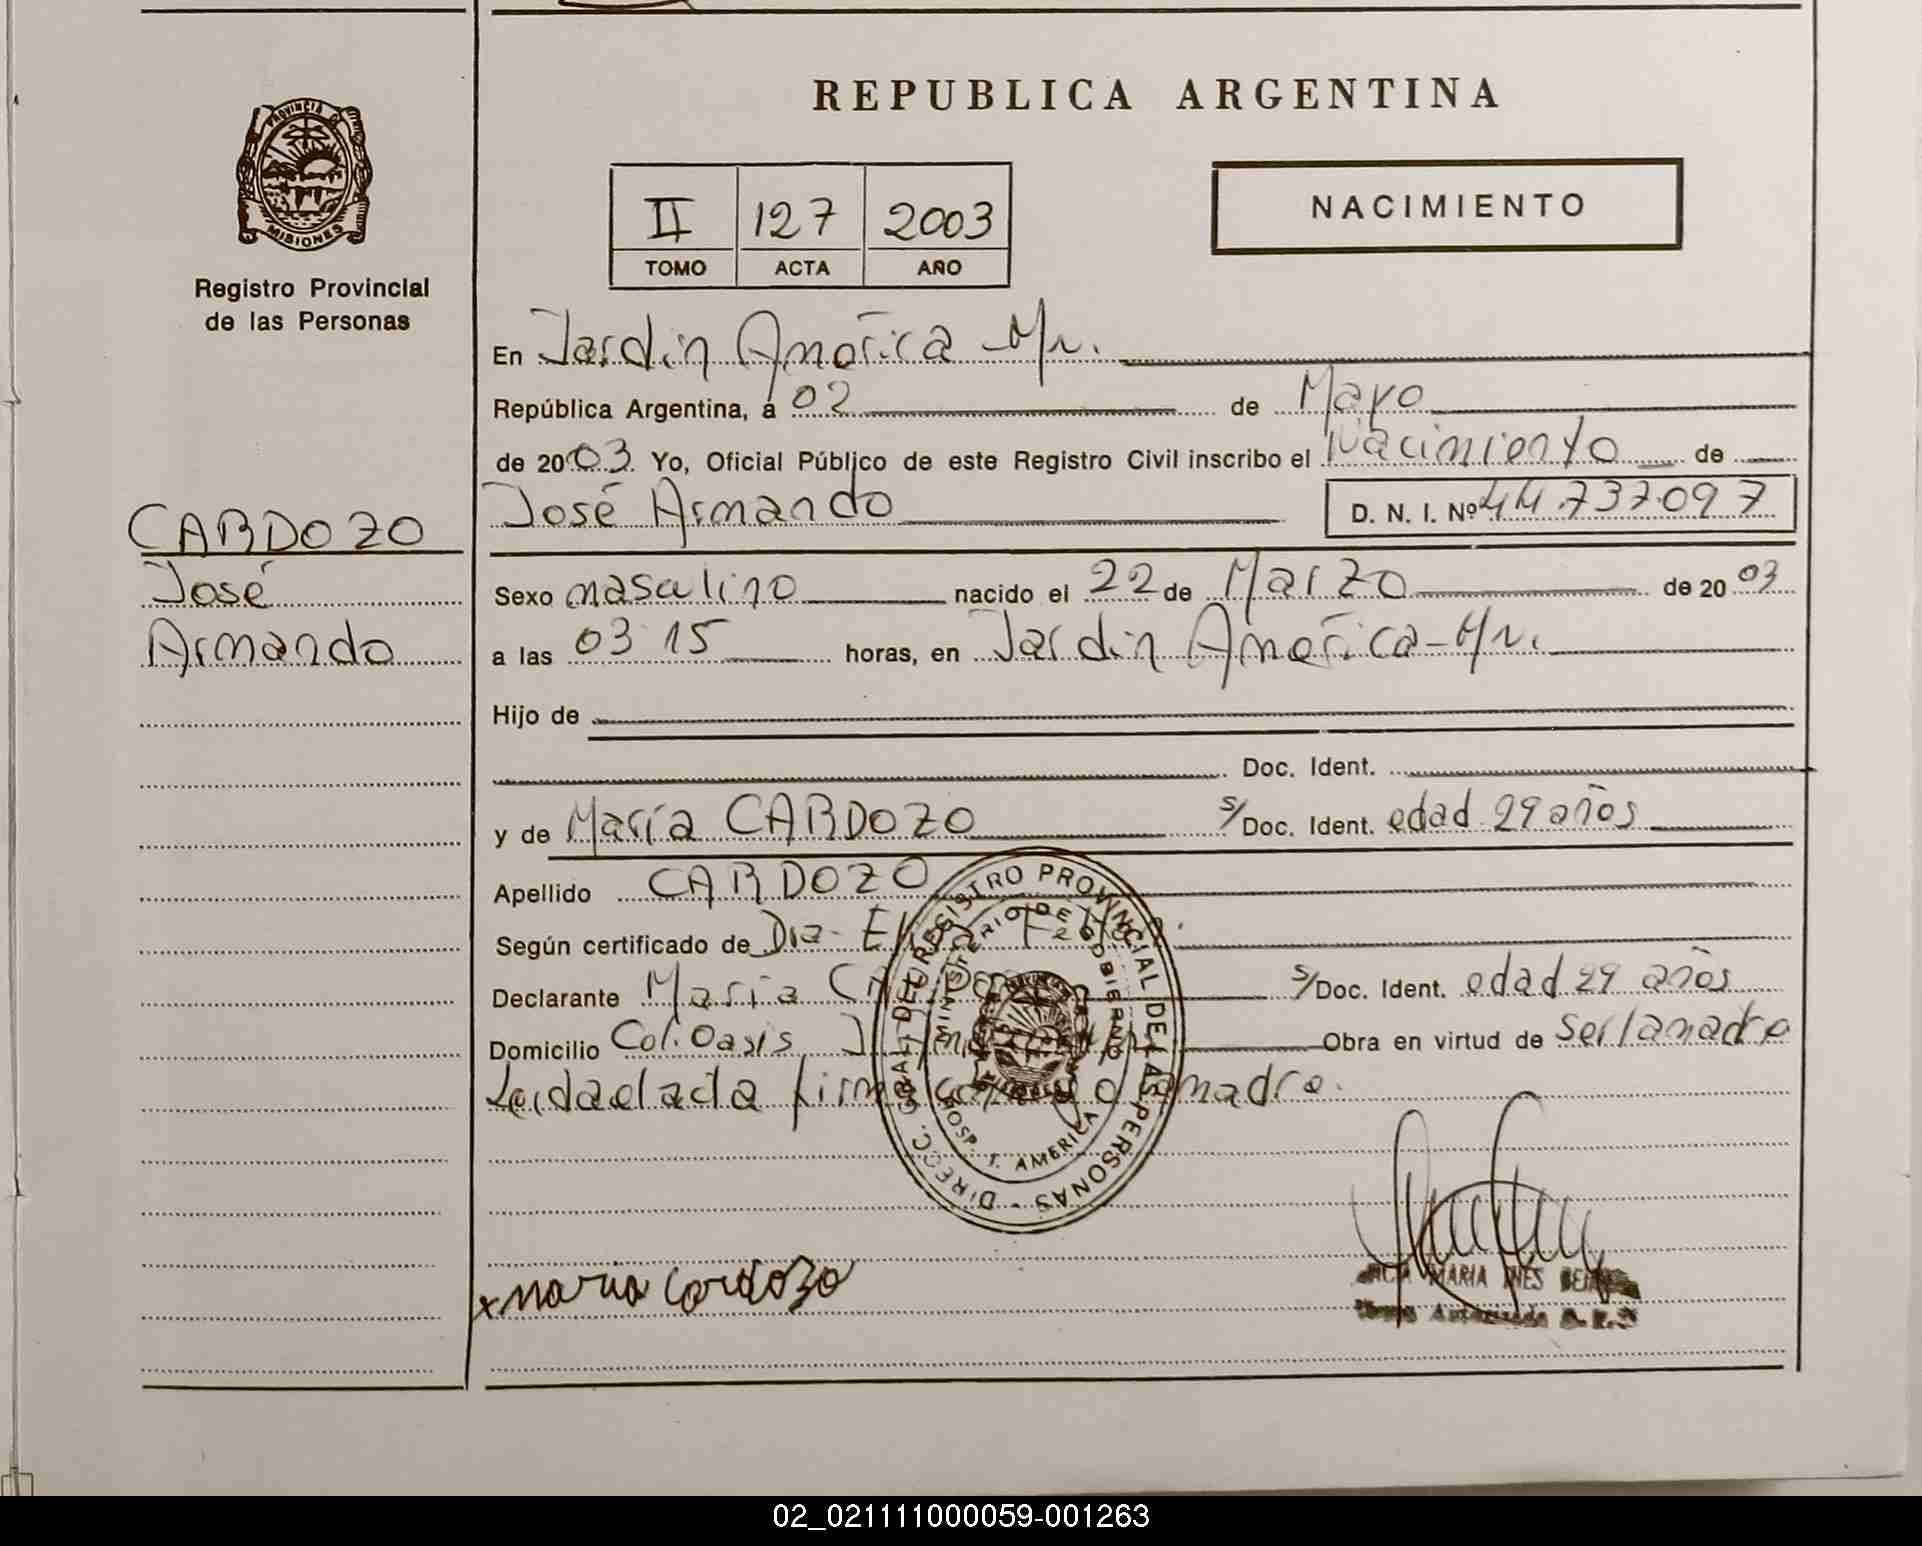 PROVINCIA DE
MISIONES
Registro Provincial
de las Personas
CARDOZO
José
Armando
REPUBLICA ARGENTINA
II 127 2003
TOMO ACTA AÑO
NACIMIENTO
En Jardin América - Mn.
República Argentina, a 02 de Mayo
de 2003. Yo, Oficial Público de este Registro Civil inscribo el Nacimiento de
José Armando D. N. I. Nº 44.737.097
Sexo masculino nacido el 22 de Marzo de 2003
a las 03 15 horas, en Jardin América - Mn.
Hijo de
Doc. Ident.
y de María CARDOZO s/Doc. Ident. edad 29 años
Apellido CARDOZO
Según certificado de Dra.
Declarante María s/Doc. Ident. edad 29 años
Domicilio Col. Oasis Obra en virtud de ser la madre
Leida el acta madre.
DIRECC. GRAL. DEL REGISTRO PROVINCIAL DE LAS PERSONAS -
MINISTERIO DE GOBIERNO
HOSP. J. AMERICA
x maria cardozo
MARIA INES
02_021111000059-001263